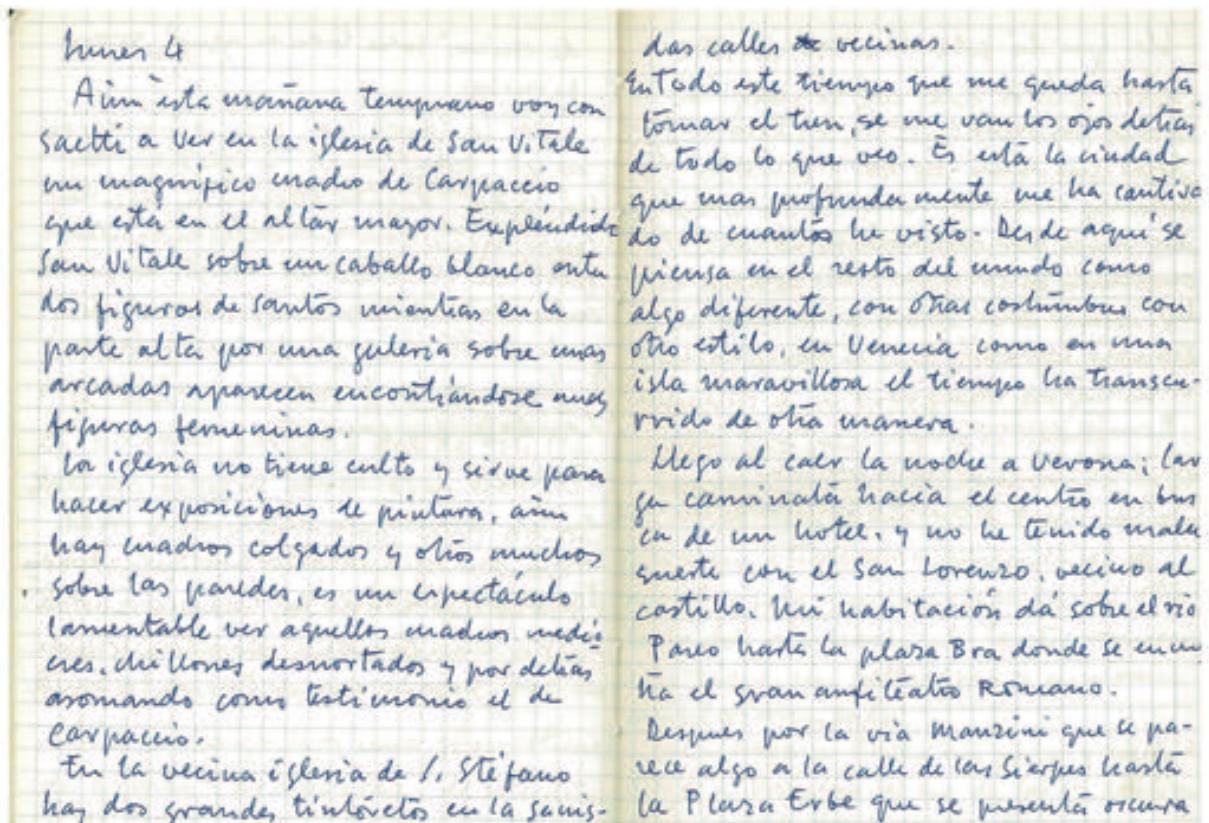 lunes 4
Aún esta mañana temprano voy con
Saetti a ver en la iglesia de San Vitale
un magnífico cuadro de Carpaccio
que está en el altar mayor. Expléndido
San Vitale sobre un caballo blanco entre
dos figuras de santos mientras en la
parte alta por una galeria sobre unas
arcadas aparecen encontrándose unas
figuras femeninas.
La iglesia no tiene culto y sirve para
hacer exposiciones de pintura, aún
hay cuadros colgados y otros muchos
sobre las paredes, es un espectáculo
lamentable ver aquellos cuadros medio
cres, chillones desnortados y por detrás
asomando como testimonio el de
Carpaccio.
En la vecina iglesia de S. Stéfano
hay dos grandes tintoretos en la sacris-
das calles vecinas.
En todo este tiempo que me queda hasta
tomar el tren, se me van los ojos detrás
de todo lo que veo. Es esta la ciudad
que mas profundamente me ha cautiva
do de cuantas he visto. Desde aquí se
piensa en el resto del mundo como
algo diferente, con otras costumbres con
otro estilo, en Venecia como en una
isla maravillosa el tiempo ha transcu-
rrido de otra manera.
Llego al caer la noche a Verona; lar
ga caminata hacia el centro en bus
ca de un hotel, y no he tenido mala
suerte con el San Lorenzo, vecino al
castillo. Mi habitación dá sobre el rio
Paseo hasta la plaza Bra donde se encuen
tra el gran anfiteatro Romano.
Despues por la via Manzini que se pa-
rece algo a la calle de las Sierpes hasta
la Plaza Erbe que se presenta oscura